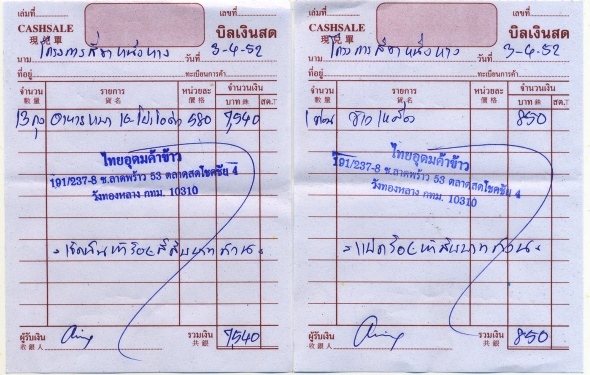 เล่มที่ เลขที่
CASHSALE บิลเงินสด
現兌單
นาม โครงการสี่ขาหนึ่งทาง วันที่ 3-4-52
ที่อยู่ ทะเบียนการค้า
จำนวน รายการ หน่วยละ จำนวนเงิน
數量 貨名 價格 บาท 銖 สต.
13 ถุง อาหารหมา 580 7540
ไทยอุดมค้าข้าว
191/237-8 ซ.ลาดพร้าว 53 ตลาดสดโชคชัย 4
วังทองหลาง กทม. 10310
เจ็ดพันห้าร้อยสี่สิบบาทถ้วน
ผู้รับเงิน รวมเงิน 7540
收銀人 共銀
เล่มที่ เลขที่
CASHSALE บิลเงินสด
現兌單
นาม โครงการสี่ขาหนึ่งทาง วันที่ 3-4-52
ที่อยู่ ทะเบียนการค้า
จำนวน รายการ หน่วยละ จำนวนเงิน
數量 貨名 價格 บาท 銖 สต.
1 ข้าวเหนียว 850
ไทยอุดมค้าข้าว
191/237-8 ซ.ลาดพร้าว 53 ตลาดสดโชคชัย 4
วังทองหลาง กทม. 10310
แปดร้อยห้าสิบบาทถ้วน
ผู้รับเงิน รวมเงิน 850
收銀人 共銀